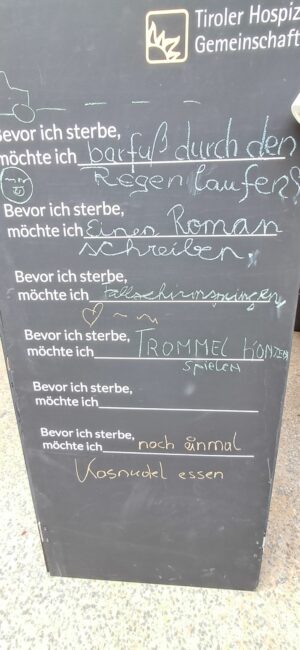 Tiroler Hospiz
Gemeinschaft
Bevor ich sterbe,
möchte ich barfuß durch den
Regen laufen
Bevor ich sterbe,
möchte ich Einen Roman
schreiben
Bevor ich sterbe,
möchte ich Fallschirmspringen
Bevor ich sterbe,
möchte ich TROMMEL KONZERT
SPIELEN
Bevor ich sterbe,
möchte ich
Bevor ich sterbe,
möchte ich noch einmal
Kasnudel essen